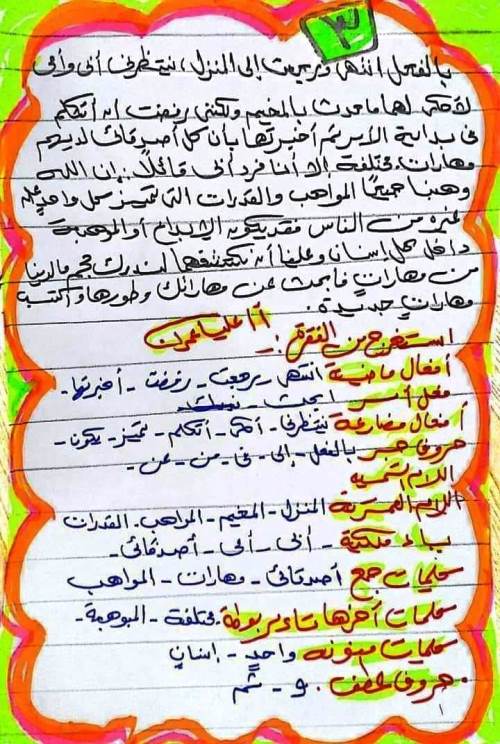 ٣
بالفعل انتهى ورجعت إلى المنزل، ينتظرنى أخى وأبى
لأحكى لها ما حدث بالمخيم ولكننى رفضت أن أتكلم
فى بداية الأمر ثم أخبرتها بأن كل أصدقائى لديهم
مهارات مختلفة إلا أنا فرد أخى قائلاً: إن الله
وهبنا جميعًا المواهب والقدرات التى تميز كل واحدٍ عن
غيره من الناس فقد يكون الإبداع أو الموهبة
داخل كل إنسان وعلينا أن نكتشفها لندرك حجم ما لدينا
من مهاراتٍ فابحث عن مهاراتك وطورها واكتسب
مهاراتٍ جديدة.
أ/ علياء عمران
استخرج من الفقرة:-
أفعال ماضية انتهى - رجعت - رفضت - أخبرتها -
فعل أمر ابحث -
أفعال مضارعة ينتظرنى - أحكى - أتكلم - تميز - يكون -
حروف جر بالفعل - إلى - فى - من - عن -
اللام الشمسية
اللام القمرية المنزل - المخيم - المواهب - القدرات
ياء ملكية - أخى - أبى - أصدقائى -
كلمات جمع أصدقائى - مهارات - المواهب
كلمات آخرها تاء مربوطة - مختلفة - الموهبة -
كلمات منونة واحدٍ - إنسان
حروف عطف . و - ثم
١